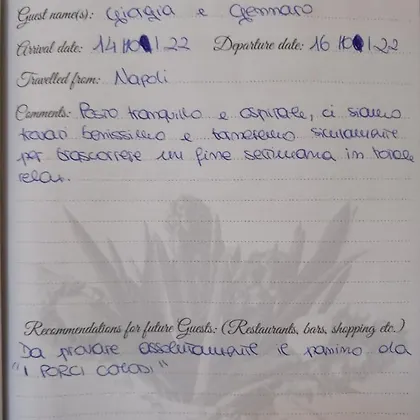 Guest name(s): Giorgia e Gennaro
Arrival date: 14 10 22 Departure date: 16 10 22
Travelled from: Napoli
Comments: Posto tranquillo e ospitale, ci siamo
trovati benissimo e torneremo sicuramente
per trascorrere un fine settimana in totale
relax.
Recommendations for future Guests: (Restaurants, bars, shopping etc.)
Da provare assolutamente il panino da
"I PORCI COMODI"